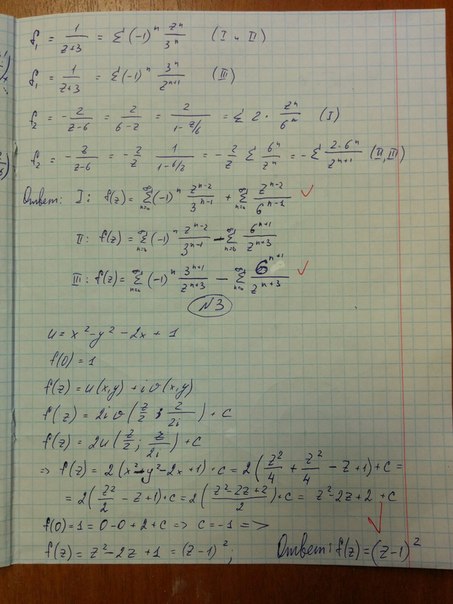 f₁ = 1/(z+3) = Σ (-1)ⁿ zⁿ/3ⁿ (I и II)
f₁ = 1/(z+3) = Σ (-1)ⁿ 3ⁿ/zⁿ⁺¹ (III)
f₂ = - 2/(z-6) = 2/(6-z) = 2/(1-z/6) = Σ 2· zⁿ/6ⁿ (I)
f₂ = - 2/(z-6) = - 2/z · 1/(1-6/z) = - 2/z Σ 6ⁿ/zⁿ = - Σ 2·6ⁿ/zⁿ⁺¹ (II, III)
Ответ: I: f(z) = Σ (-1)ⁿ zⁿ⁻²/3ⁿ⁻¹ + Σ zⁿ⁻²/6ⁿ⁻¹ ✓
II: f(z) = Σ (-1)ⁿ zⁿ⁻²/3ⁿ⁻¹ - Σ 6ⁿ⁺¹/zⁿ⁺³
III: f(z) = Σ (-1)ⁿ 3ⁿ⁺¹/zⁿ⁺³ - Σ 6ⁿ⁺¹/zⁿ⁺³ ✓
N3
u = x² - y² - 2x + 1
f(0) = 1
f(z) = u(x,y) + i v(x,y)
f(z) = 2i v(z/2; z/2i) + C
f(z) = 2u(z/2; z/2i) + C
⇒ f(z) = 2(x² - y² - 2x + 1) + C = 2(z²/4 + z²/4 - z + 1) + C =
= 2(z²/2 - z + 1) + C = 2((z² - 2z + 2)/2) + C = z² - 2z + 2 + C
f(0) = 1 = 0 - 0 + 2 + C ⇒ C = -1 ⇒
f(z) = z² - 2z + 1 = (z-1)²; Ответ: f(z) = (z-1)² ✓